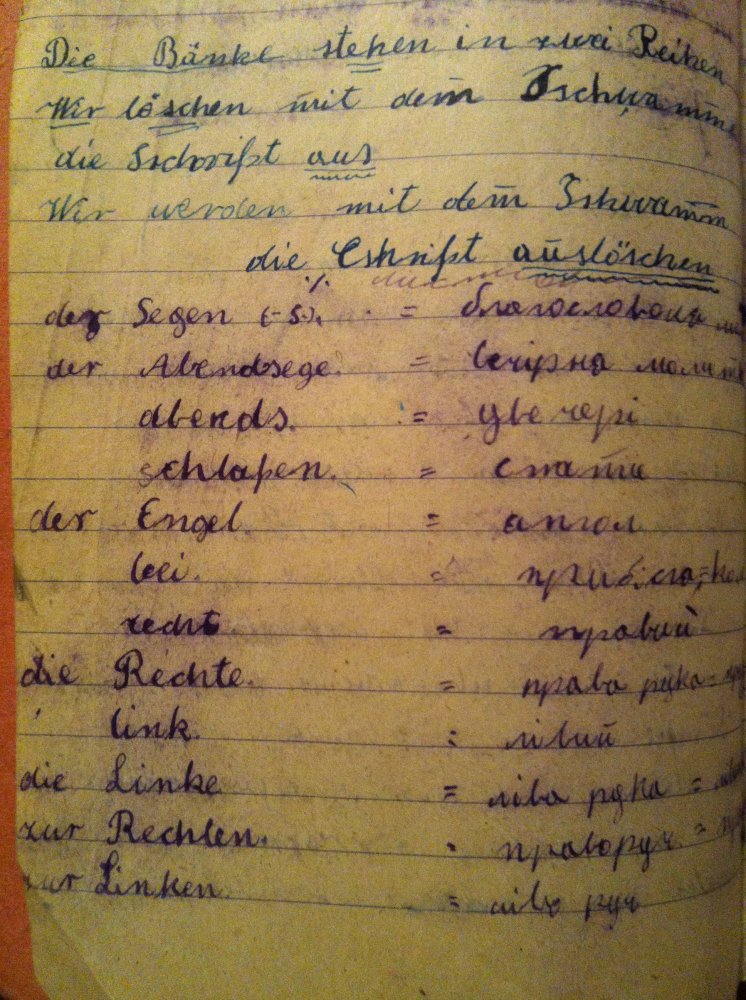 Die Bänke stehen in zwei Reihen
Wir löschen mit dem Schwamme
die Schrift aus
Wir werden mit dem Schwamm
die Schrift auslöschen
der Segen (-s) =
der Abendsege = вечірна
abends. = увечері
schlafen. = спати
der Engel. = ангол
bei. = при, біля,
recht = правий
die Rechte. = права рука =
link. = лівий
die Linke = ліва рука =
zur Rechten. = праворуч =
zur Linken = ліво руч